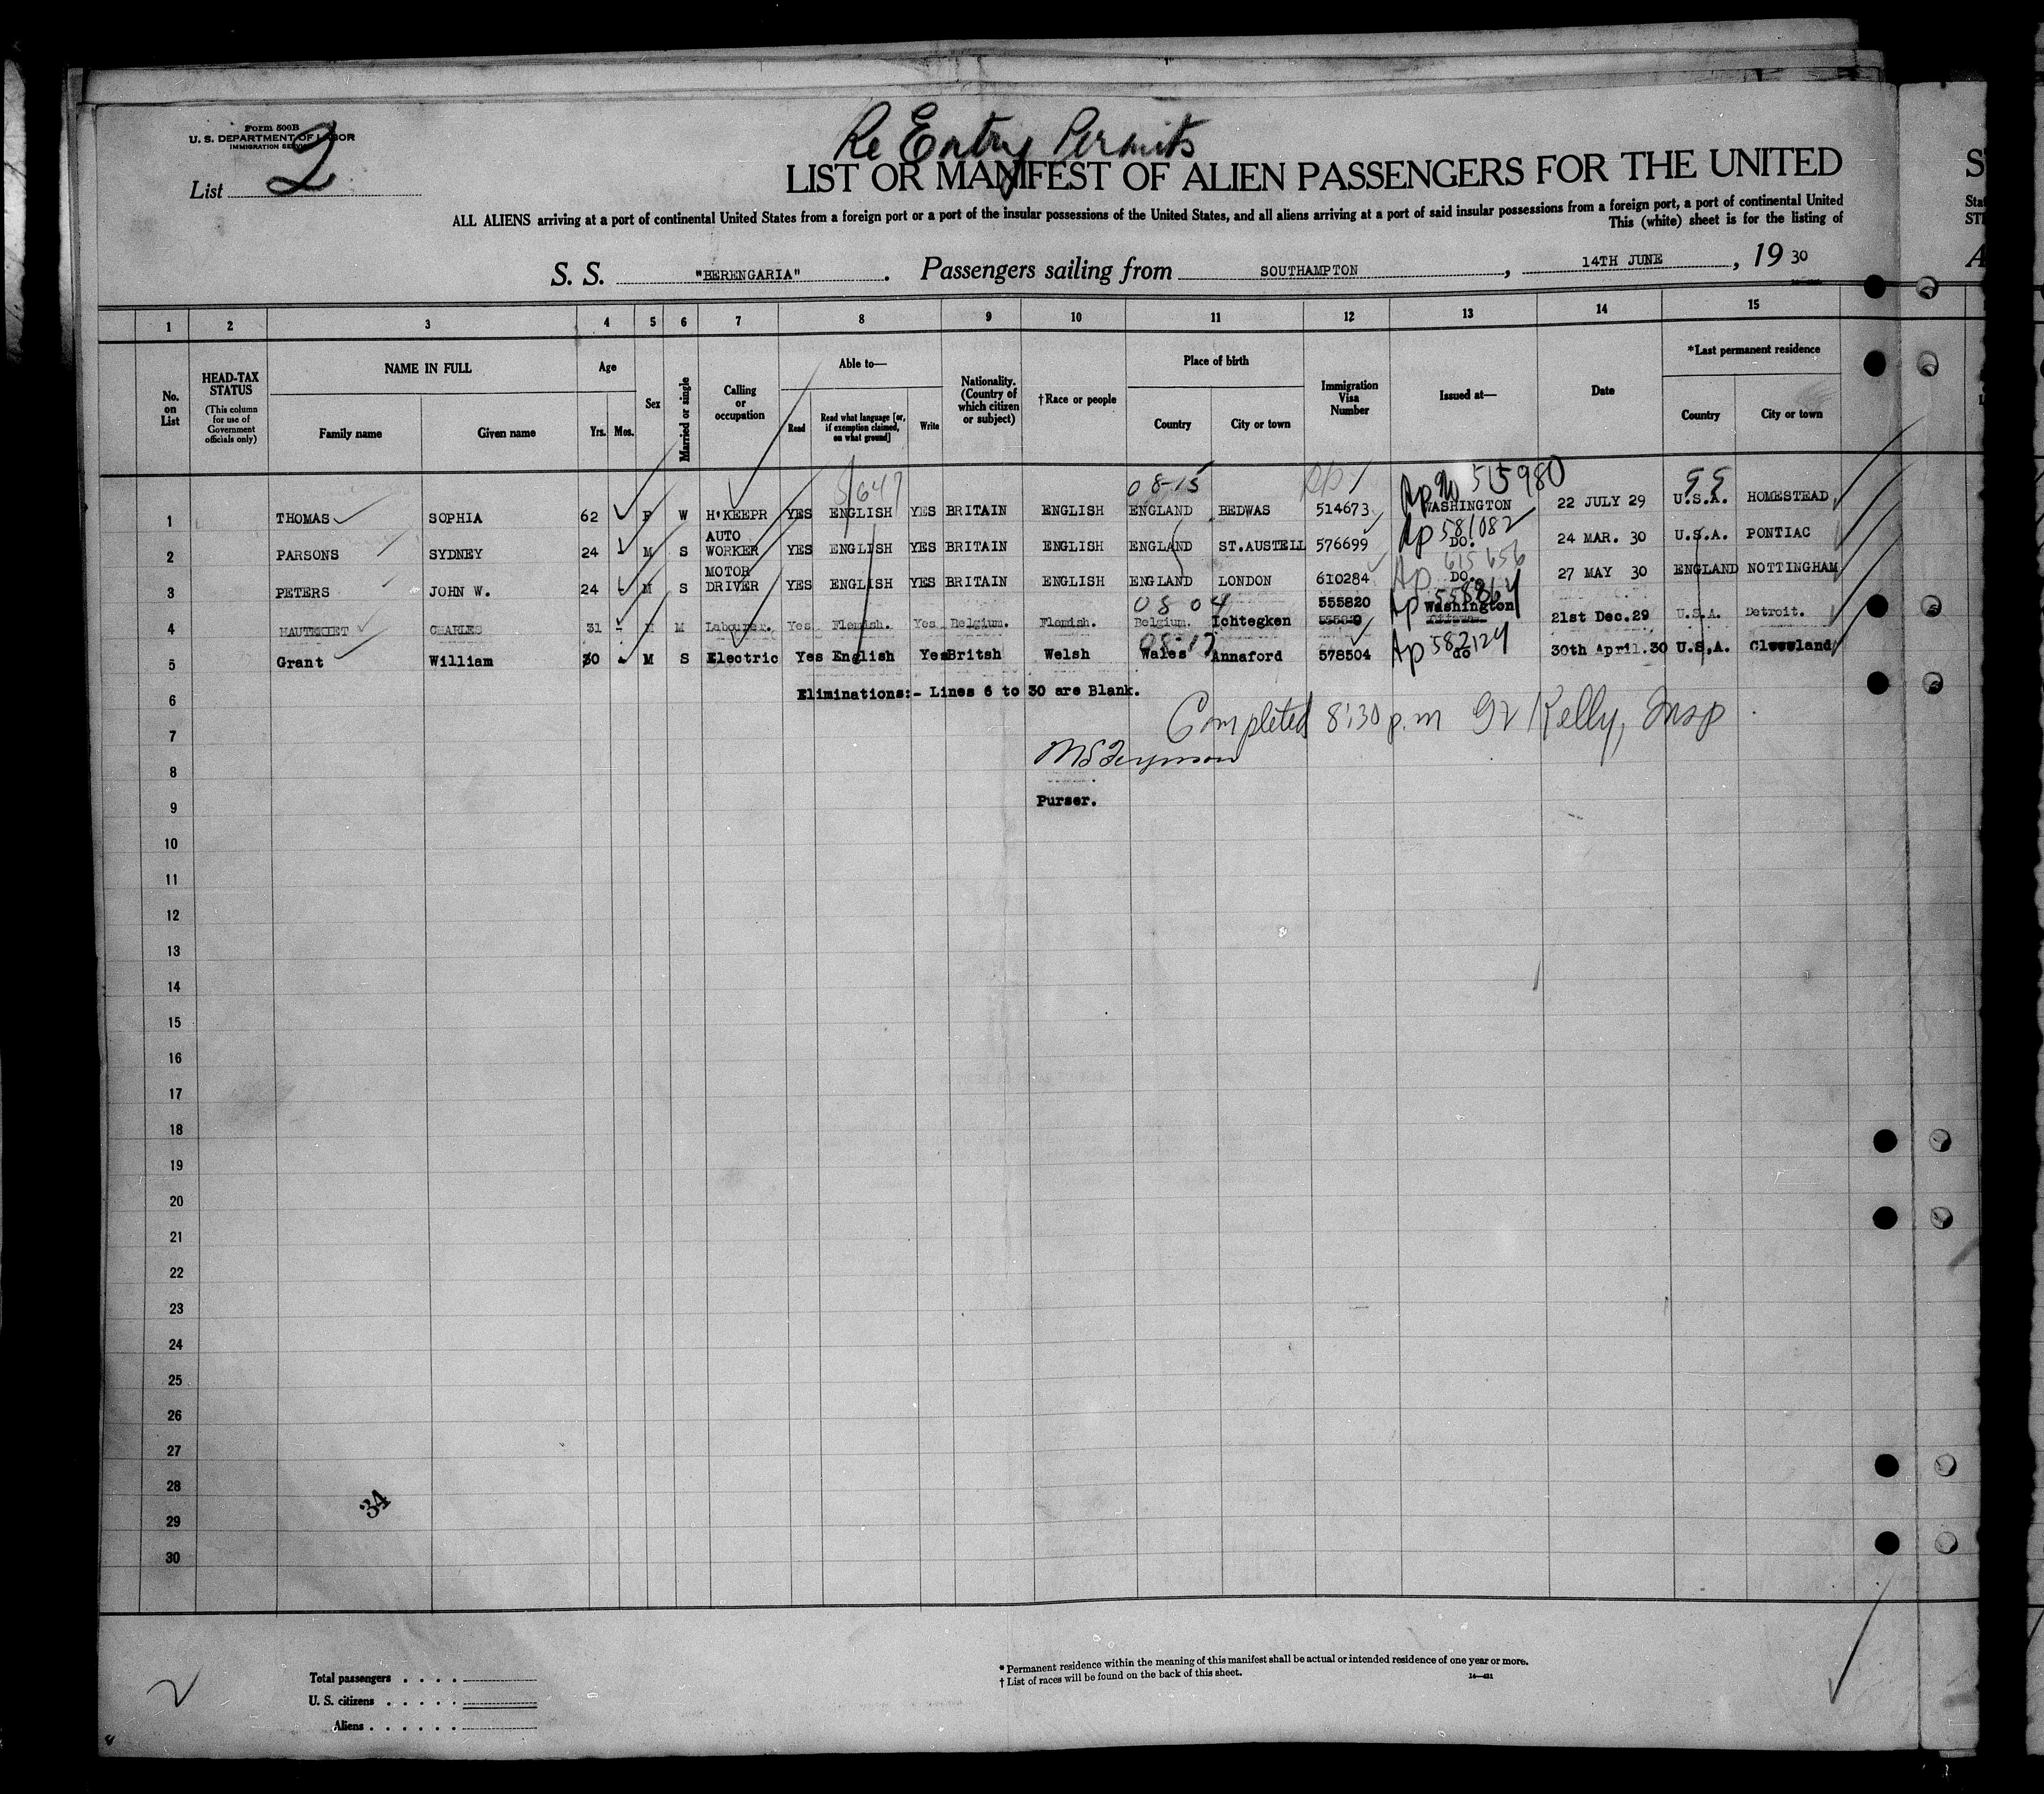 Form 500B
U. S. DEPARTMENT OF LABOR
IMMIGRATION SERVICE
List 2
Re Entry Permits
LIST OR MANIFEST OF ALIEN PASSENGERS FOR THE UNITED
ALL ALIENS arriving at a port of continental United States from a foreign port or a port of the insular possessions of the United States, and all aliens arriving at a port of said insular possessions from a foreign port, a port of continental United
This (white) sheet is for the listing of
S. S. "BERENGARIA". Passengers sailing from SOUTHAMPTON, 14TH JUNE, 19 30
1 2 3 4 5 6 7 8 9 10 11 12 13 14 15
No. on List
HEAD-TAX STATUS
(This column for use of Government officials only)
NAME IN FULL
Family name Given name
Age
Yrs. Mos.
Sex
Married or single
Calling or occupation
Able to—
Read
Read what language [or, if exemption claimed, on what ground]
Write
Nationality. (Country of which citizen or subject)
†Race or people
Place of birth
Country City or town
Immigration Visa Number
Issued at—
Date
*Last permanent residence
Country City or town
5/647 08-15 RP/ Ap No 515980 55
1 THOMAS SOPHIA 62 F W H'KEEPR YES ENGLISH YES BRITAIN ENGLISH ENGLAND BEDWAS 514673 WASHINGTON 22 JULY 29 U.S.A. HOMESTEAD
Ap 581082
2 PARSONS SYDNEY 24 M S AUTO WORKER YES ENGLISH YES BRITAIN ENGLISH ENGLAND ST.AUSTELL 576699 DO. 24 MAR. 30 U.S.A. PONTIAC
Ap 615656
3 PETERS JOHN W. 24 M S MOTOR DRIVER YES ENGLISH YES BRITAIN ENGLISH ENGLAND LONDON 610284 DO. 27 MAY 30 ENGLAND NOTTINGHAM
08 04 555820 Ap 558864 Washington
4 CHARLES 31 M M Labourer. Yes Flemish. Yes Belgium. Flemish. Belgium. Ichtegken 21st Dec.29 U.S.A. Detroit.
08-17 Ap 582124
5 Grant William 30 M S Electric Yes English Yes Britsh Welsh Wales Annaford 578504 do 30th April.30 U.S.A. Cleveland
Eliminations:- Lines 6 to 30 are Blank.
6
Completed 8:30 p.m Kelly, Insp
7
8
Purser.
9
10
11
12
13
14
15
16
17
18
19
20
21
22
23
24
25
26
27
28
34
29
30
Total passengers . . . .
U. S. citizens . . . . .
Aliens . . . . . .
* Permanent residence within the meaning of this manifest shall be actual or intended residence of one year or more.
† List of races will be found on the back of this sheet.